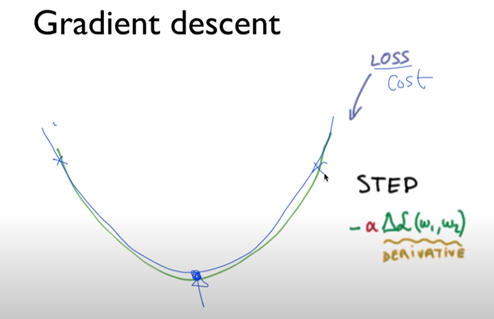 Gradient descent
LOSS
Cost
STEP
- α Δℒ(ω₁, ω₂)
DERIVATIVE